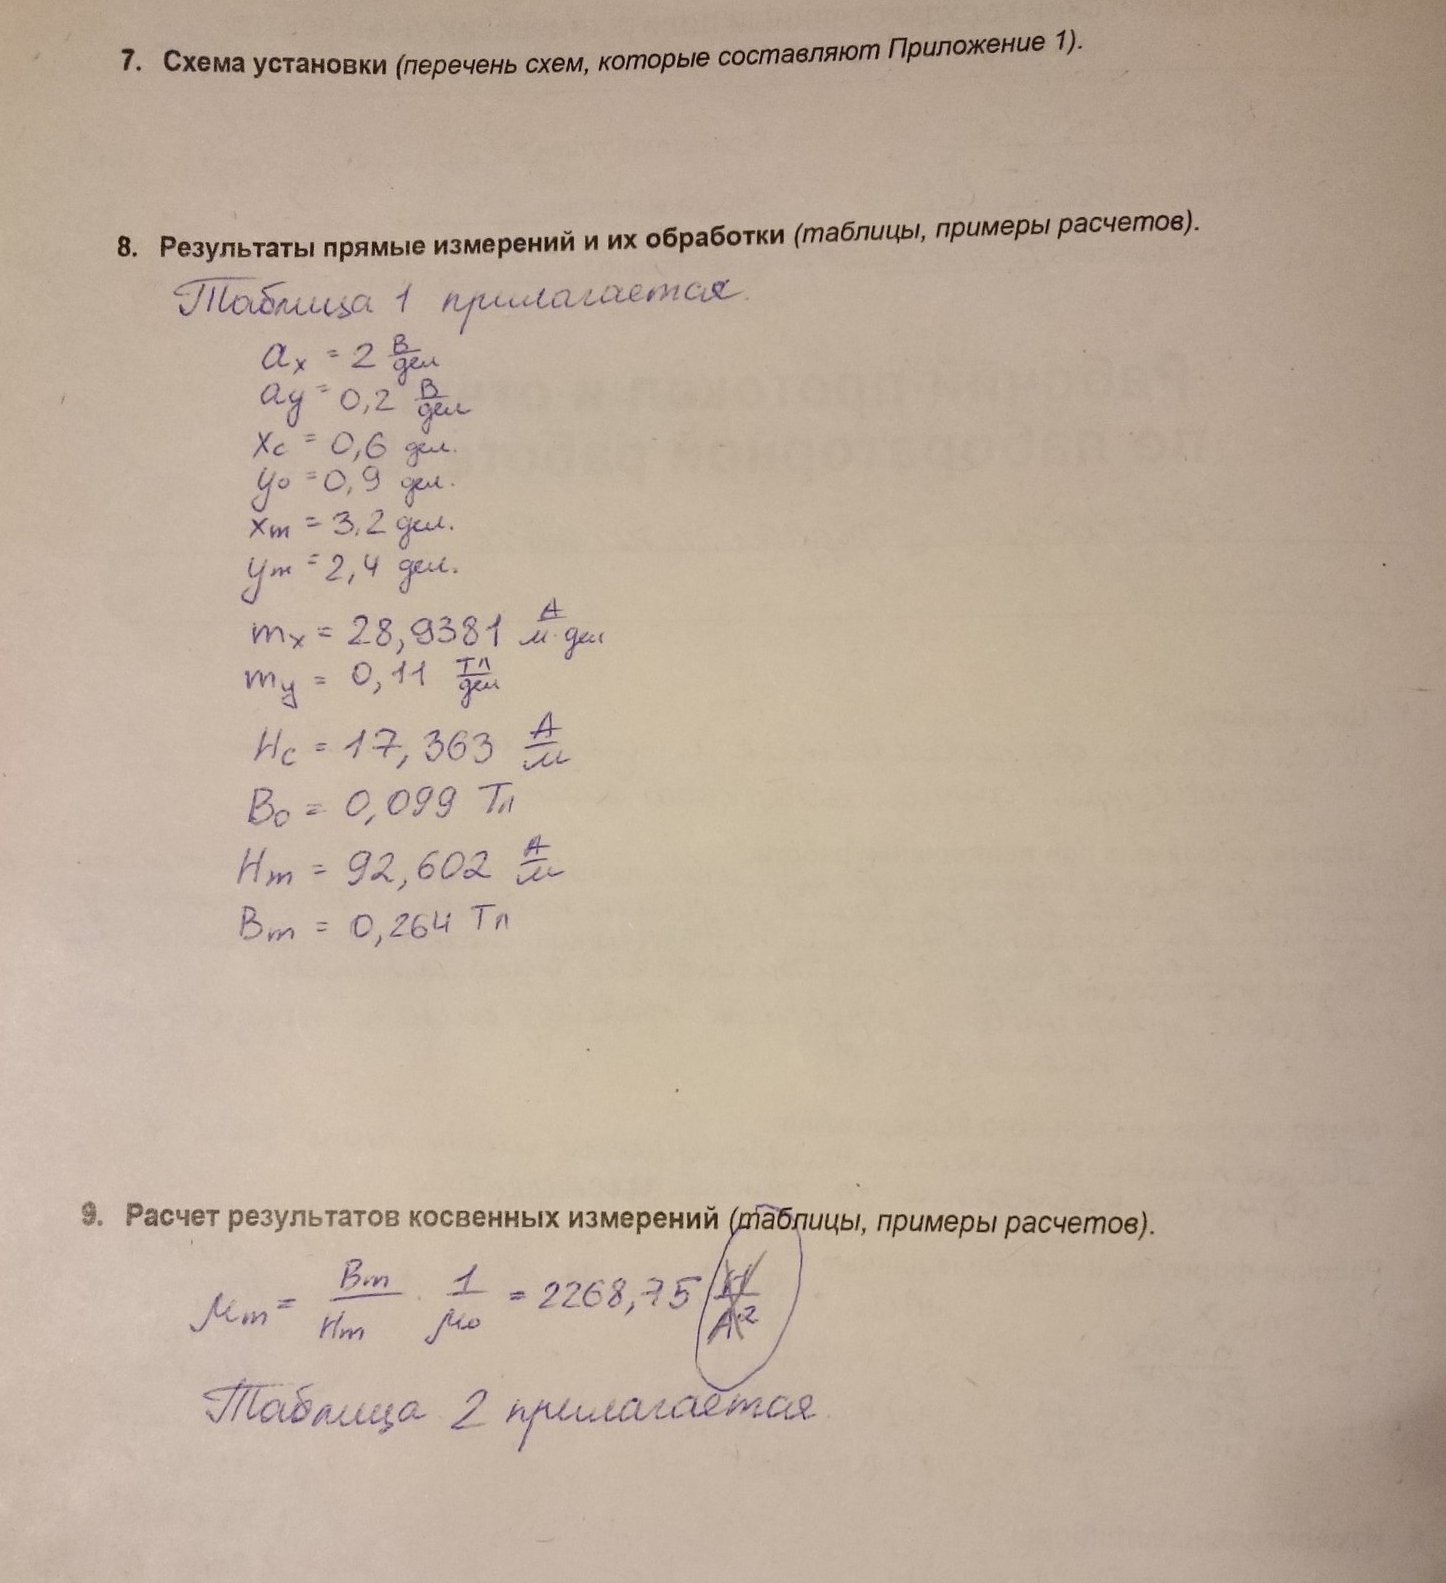 7. Схема установки (перечень схем, которые составляют Приложение 1).
8. Результаты прямые измерений и их обработки (таблицы, примеры расчетов).
Таблица 1 прилагается.
ax = 2 В/дел
ay = 0,2 В/дел
xc = 0,6 дел.
y0 = 0,9 дел.
xm = 3,2 дел.
ym = 2,4 дел.
mx = 28,9381 А/м·дел
my = 0,11 Тл/дел
Hc = 17,363 А/м
B0 = 0,099 Тл
Hm = 92,602 А/м
Bm = 0,264 Тл
9. Расчет результатов косвенных измерений (таблицы, примеры расчетов).
μm = Bm/Hm · 1/μ0 = 2268,75 Н/А²
Таблица 2 прилагается.